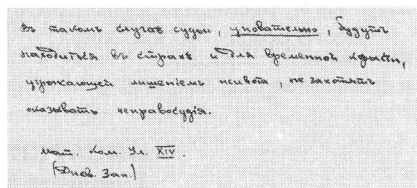 въ такомъ случаѣ судьи, уповательно, будутъ
находиться въ страхѣ и для временной корысти,
угрожающей лишеніемъ живота, не захотятъ
оказывать неправосудія.
Мат. Ком. Ул. XIV.
(Днев. Зап.)